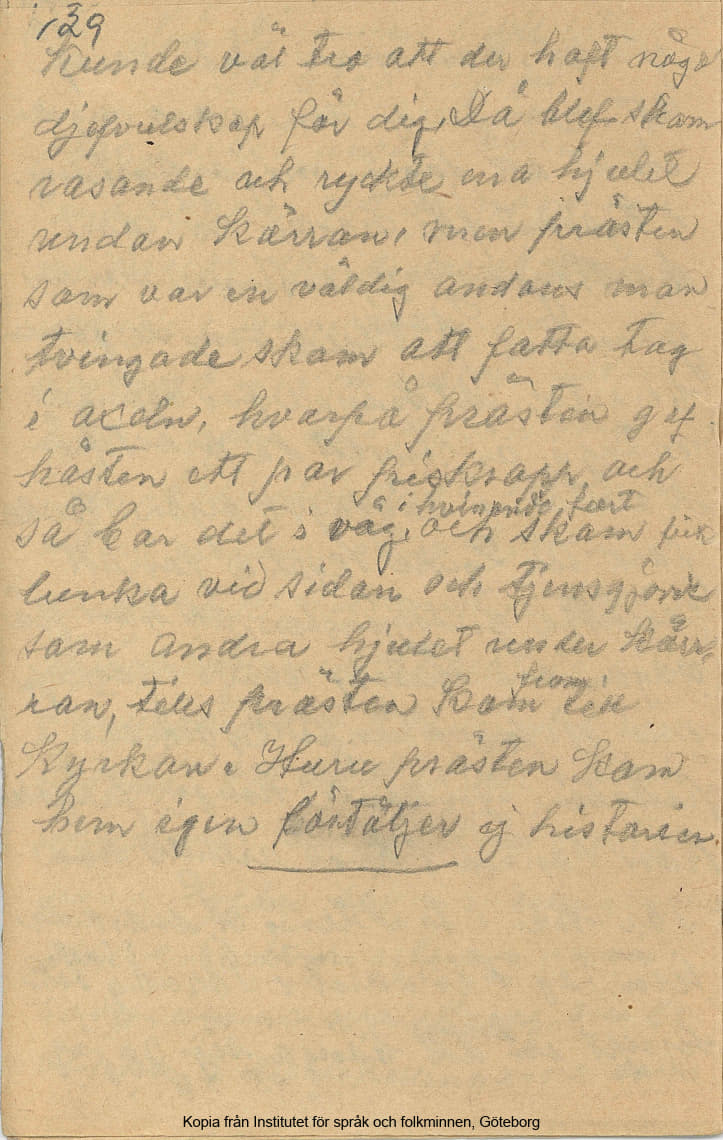 139
Kunde väl tro att du haft någe
djefvulskap för dig. Då blef skam
rasande och ryckte ena hjulet
undan kärran, men prästen
som var en väldig andans man
tvingade skam att fatta tag
i axeln, hvarpå prästen gef
hästen ett par piskrapp och
i hvinande fart
så bar det i väg, och skam fik
lunka vid sidan och tjensgjöra
som andra hjulet under kärr-
fram
ran, tills prästen kom till
Kyrkan. Huru prästen kom
hem igen förtäljer ej historien.
Kopia från Institutet för språk och folkminnen, Göteborg